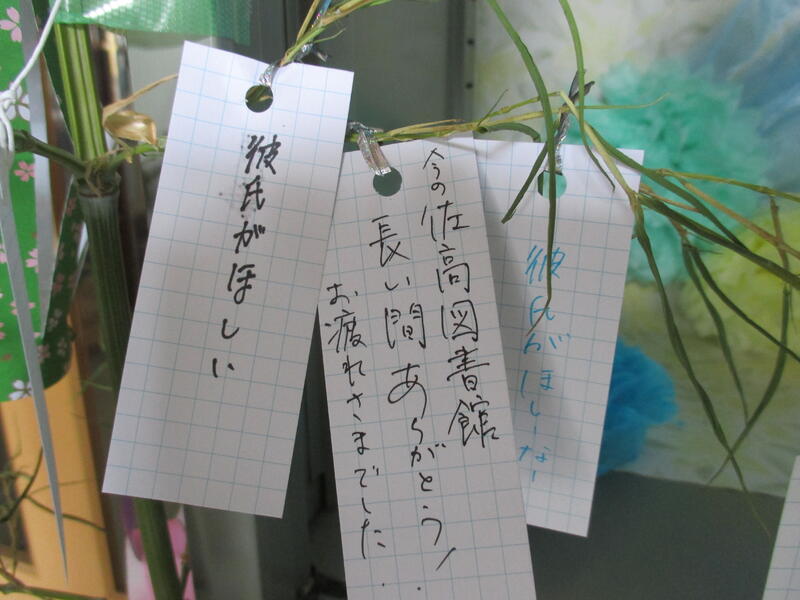 彼氏がほしい
今の佐高図書館
長い間ありがとう!
お疲れさまでした..
彼氏がほしーなー